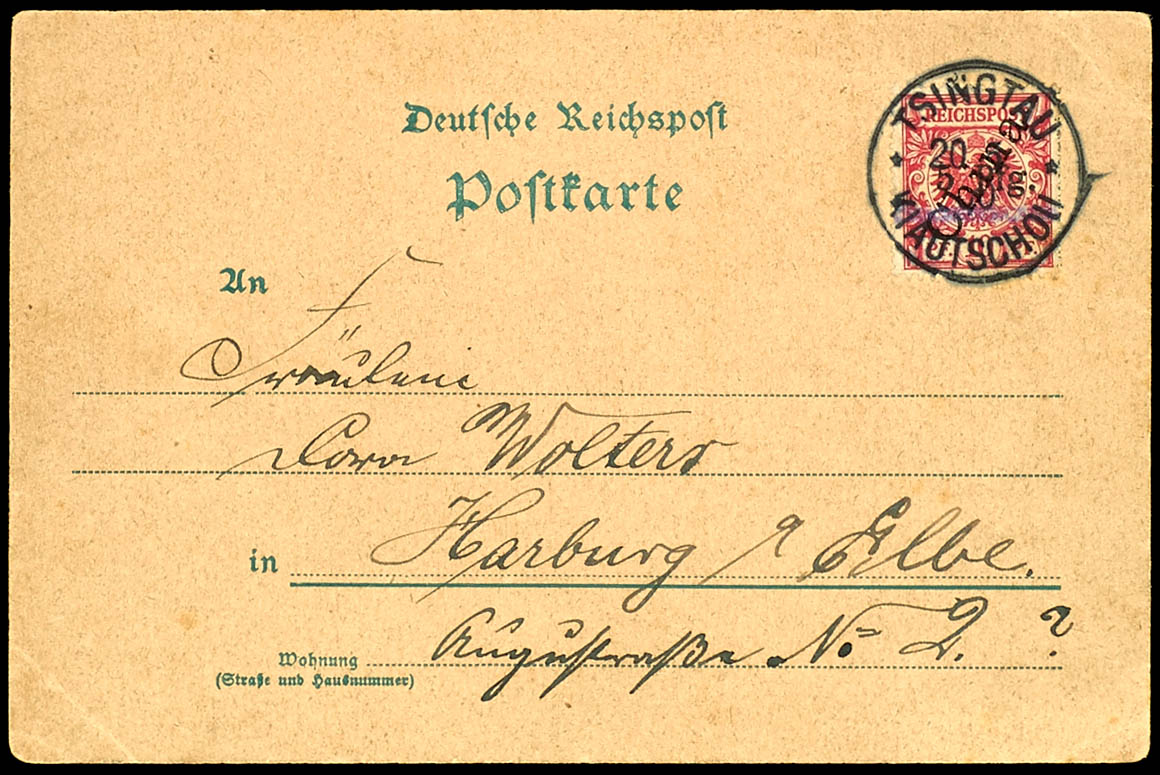 Deutsche Reichspost
Postkarte
TSINGTAU
KIAUTSCHOU
20
REICHSPOST
China
An
Fräulein
Dora Wolters
in Harburg a Elbe.
Wohnung Auguststraße No 2. ?
(Straße und Hausnummer)